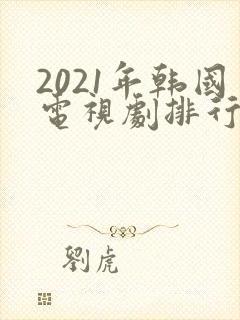 2021年韩國
電視劇排行
劉虎